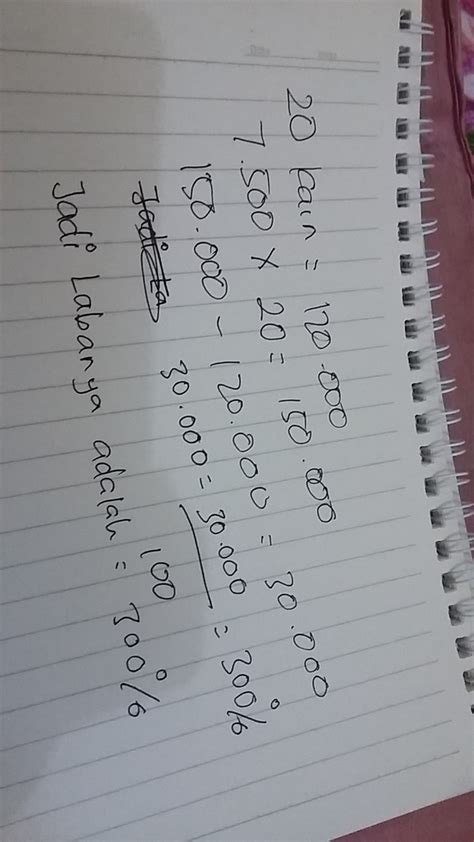 20 kain = 120.000
7.500 × 20 = 150.000
150.000 - 120.000 = 30.000
30.000 = 30.000 = 30%
100
Jadi Labanya adalah = 30%